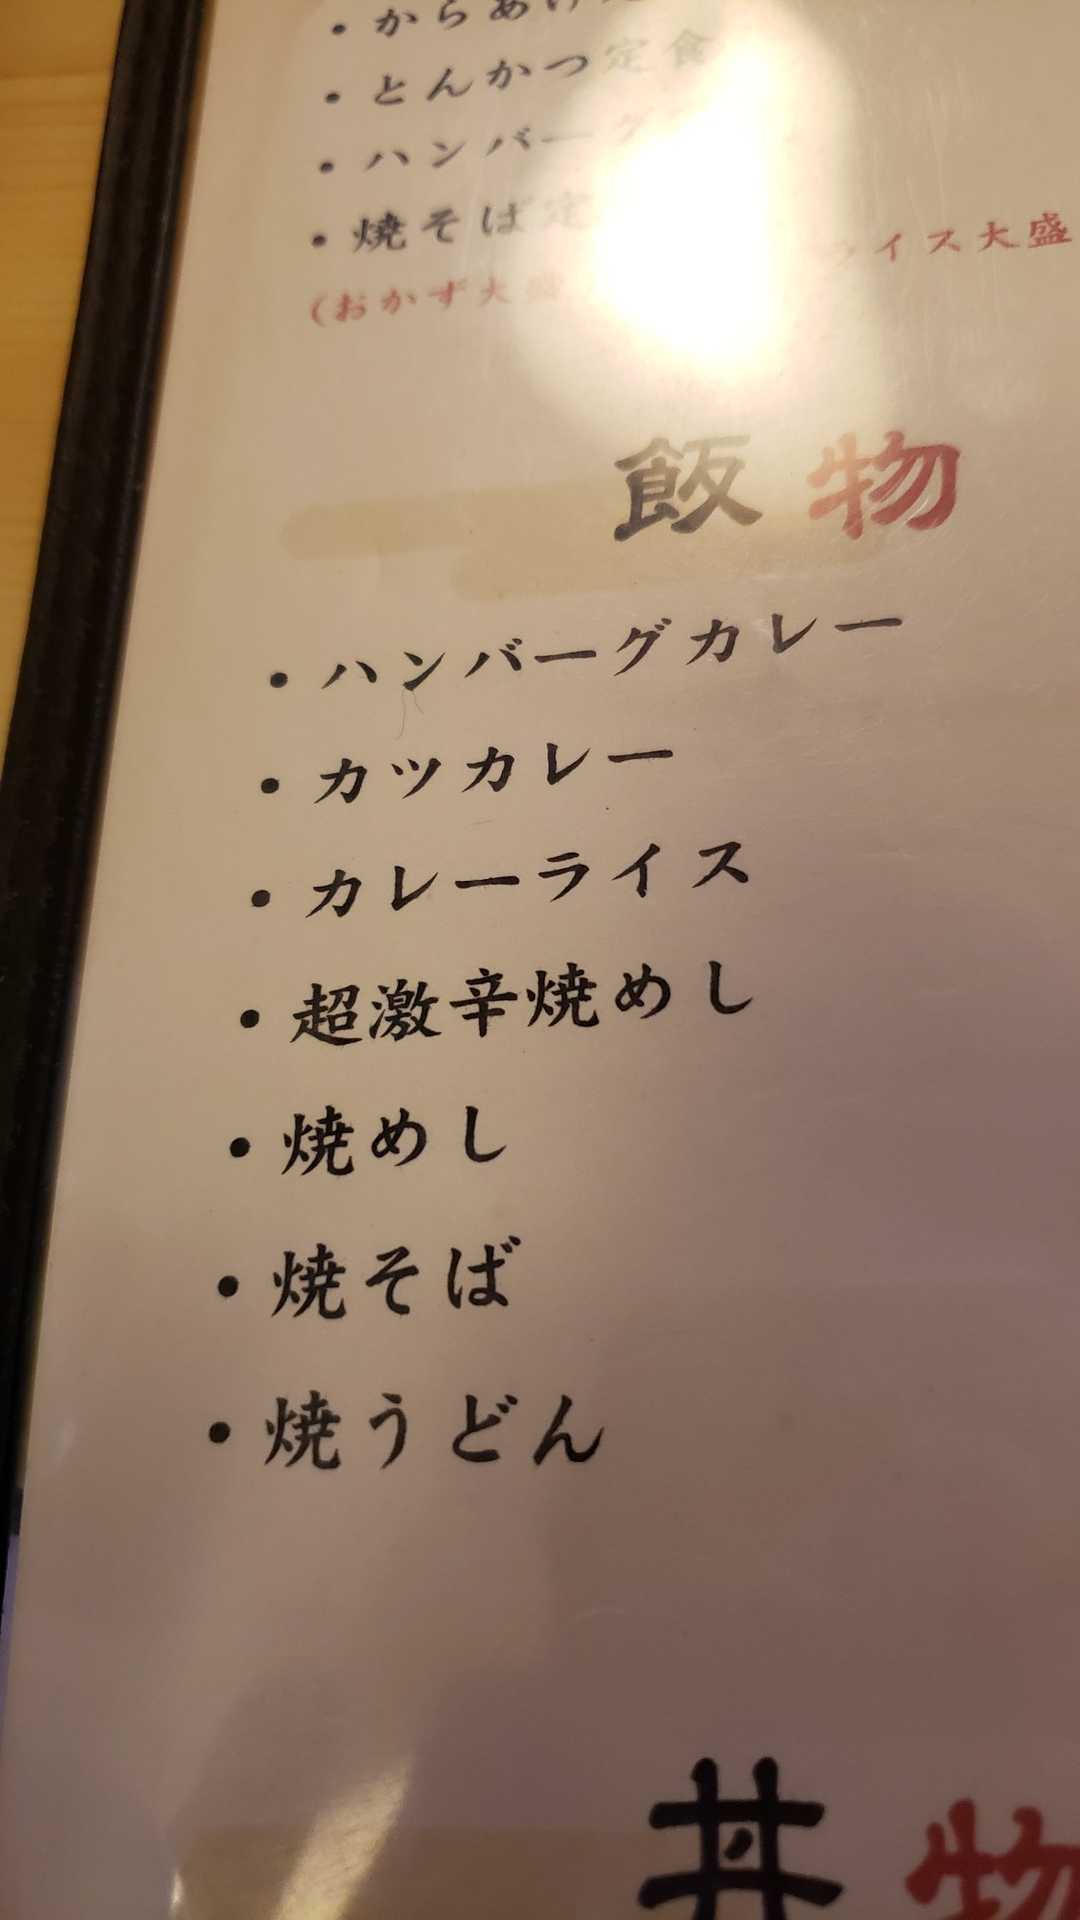 ・からあげ
・とんかつ定食
・ハンバーグ
・焼そば定
(おかず大盛 ライス大盛
飯物
・ハンバーグカレー
・カツカレー
・カレーライス
・超激辛焼めし
・焼めし
・焼そば
・焼うどん
丼物